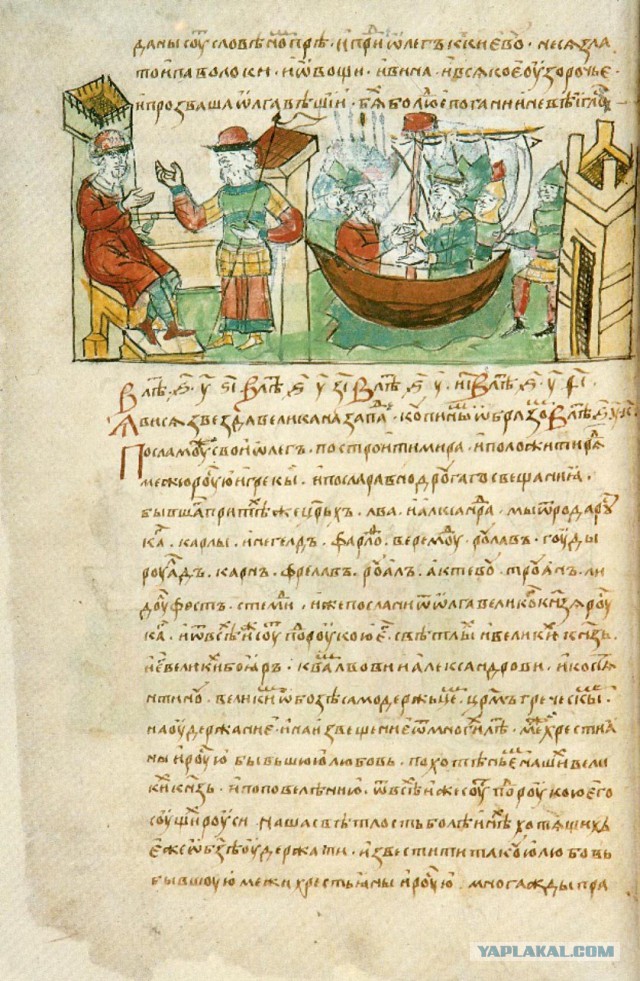 даны соу словѣномъ прѣ · и приде ѡлегъ к киевоу · неся зла
то и паволоки · и ѡвощи · и вина · и всѧкое оузорочье ·
и прозваша ѡлга вѣщии · бѧху бо людие погани и невѣигл
В лѣⷮ · ѕ҃ · у҃ · ѕ҃і В лѣⷮ · ѕ҃ · у҃ · з҃і В лѣⷮ · ѕ҃ · у҃ · и҃і В лѣⷮ · ѕ҃ · у҃ · ѳ҃і ·
Явися звезда велика на запаⷣ · копиины ѡбразоⷨ В лѣⷮ ѕ҃ у҃ к҃ ·
Посла моужⷤ свои ѡлегъ · построити мира · и положити рѧⷣ
межю роусью и грекы · и посла равно другаго свещания ·
бывшаⷢ при тѣⷯже цр҃ьхъ · лва · и алксанⷣра · мы ѿ рода роус
ка · карлы · инегелдъ · фарлоⷴ · веремоуⷣ · роулавъ · гоуды
роуалдъ · карнъ · фрелавъ · роуалъ · актевоу · троуанъ · ли
доулъ фостъ · стемиⷣ · иже послани ѿ ѡлга великоⷢ кнѧзѧ роус
ка · и ѿ всѣⷯ иже соуⷮ поⷣ роукою еⷢ · свѣтлыⷯ и великиⷯ кнѧзь ·
и еⷢ великиⷯ боѧръ · к ваⷨ лвови и александрови · и костѧ
нтиноу · великиⷨ ѡ бозѣ самодержьцеⷨ · црⷭмъ греческыⷨ
на оудержание · и на извещение ѿ многиⷯ лѣⷮ · межⷤ хрестиа
ны и роусью бывьшюю любовь · похотѣньеⷨ нашиⷯ вели
киⷯ кнѧзь · и по повелению · ѿ всѣⷯ иже соуⷮ поⷣ роукою его
соущиⷯ роуси · наша свѣтлость боле инѣⷯ хотящихъ
еже ѡ бозѣ оудержати · и звестити такоую любовь
бывшоую межи хрестьяны и роусью · многажды пра
YAPLAKAL.COM